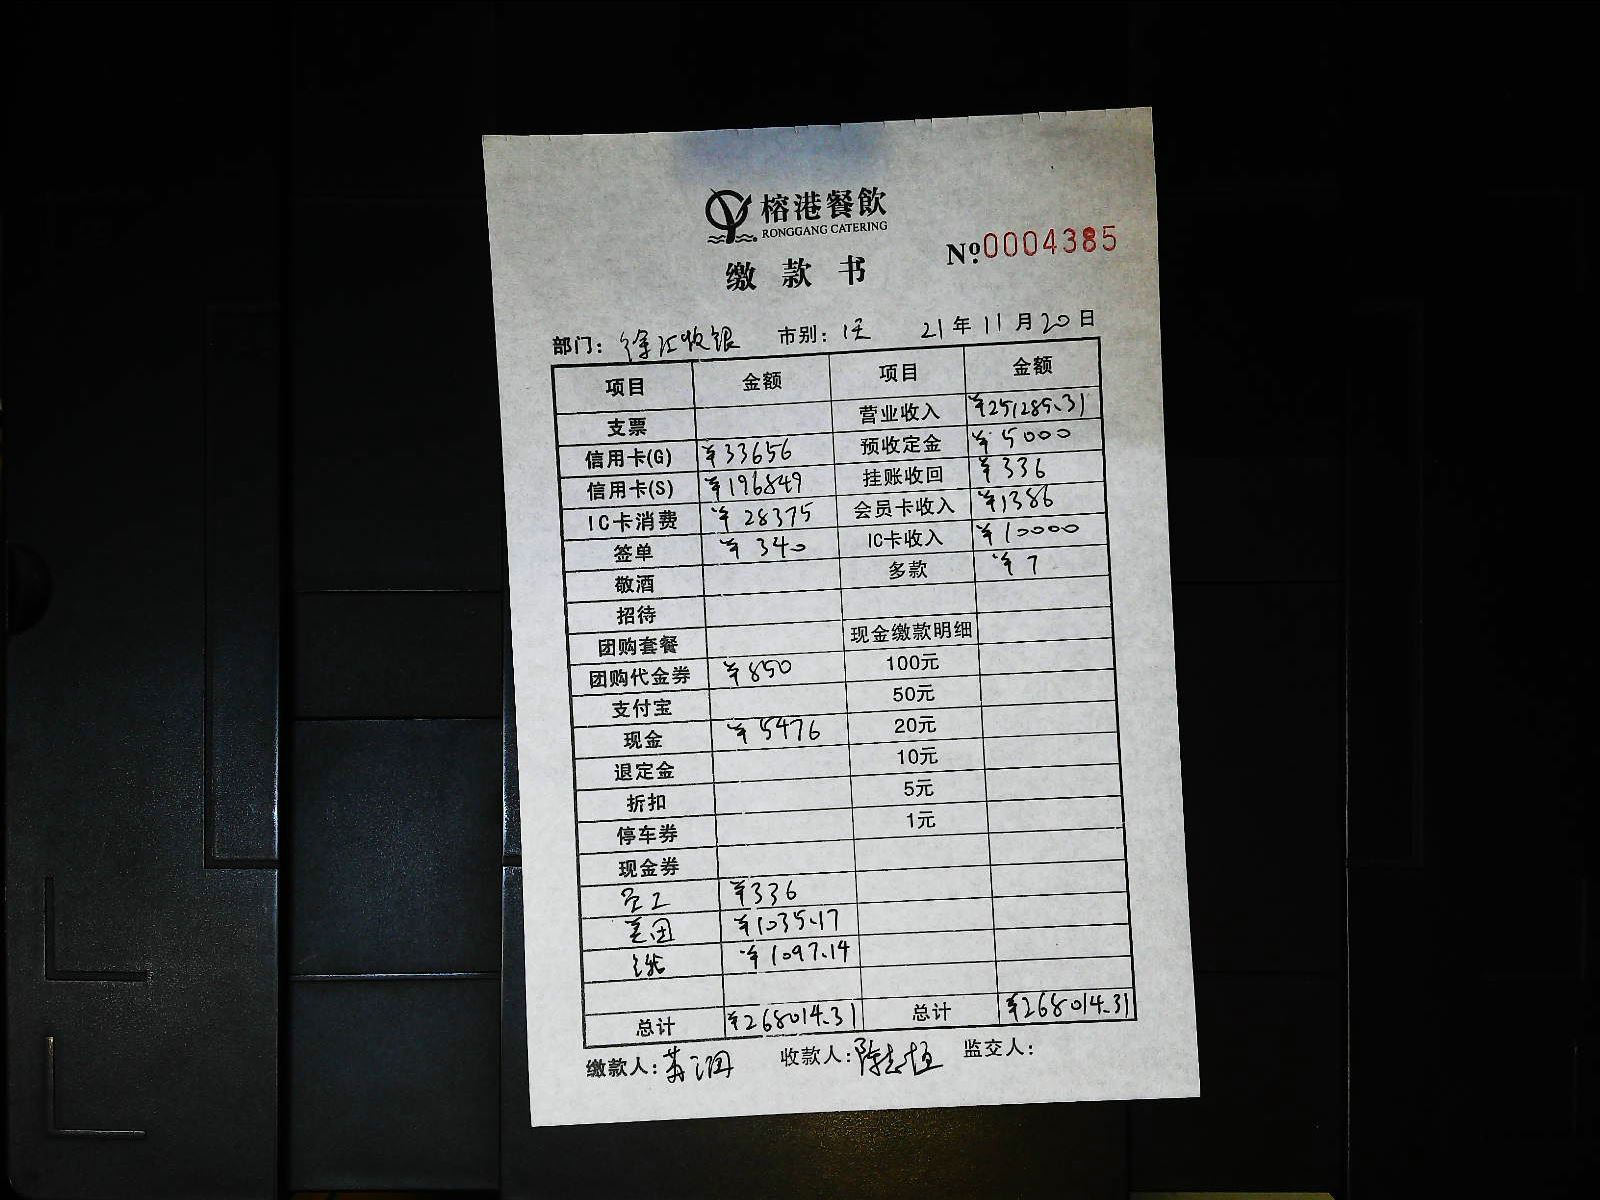 榕港餐飲
RONGGANG CATERING
缴款书
No.0004385
部门：徐汇收银 市别： 21年11月20日
项目 金额 项目 金额
支票 营业收入 ¥251285.31
信用卡(G) ¥33656 预收定金 ¥5000
信用卡(S) ¥196849 挂账收回 ¥336
IC卡消费 ¥28375 会员卡收入 ¥1386
签单 ¥340 IC卡收入 ¥10000
敬酒 多款 ¥7
招待
团购套餐 现金缴款明细
团购代金券 ¥850 100元
支付宝 50元
现金 ¥5476 20元
退定金 10元
折扣 5元
停车券 1元
现金券
员工 ¥336
美团 ¥1035.17
¥1097.14
总计 ¥268014.31 总计 ¥268014.31
缴款人： 收款人：陈志恒 监交人：